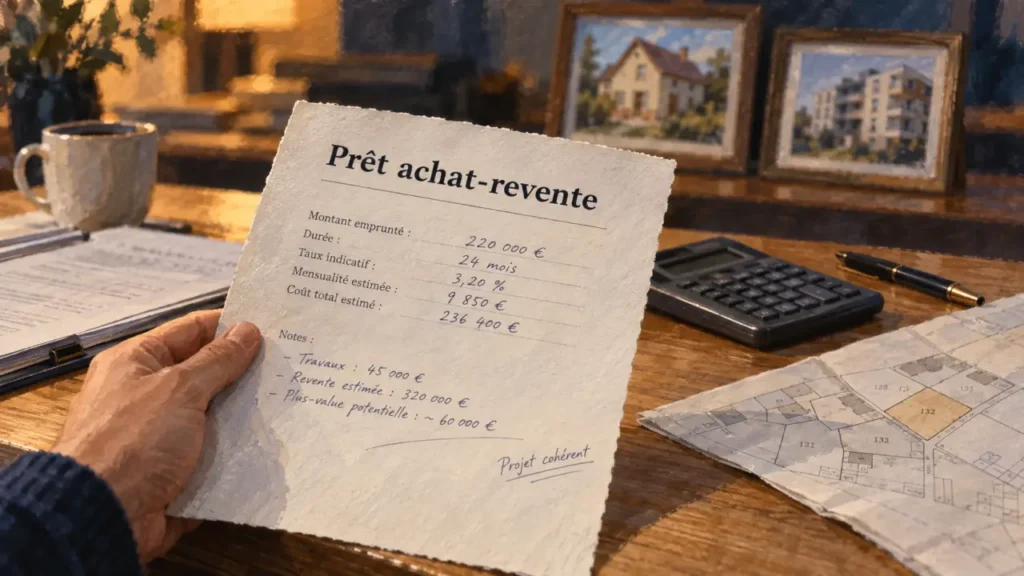 Prêt achat-revente
Montant emprunté : 220 000 €
Durée : 24 mois
Taux indicatif : 3,20 %
Mensualité estimée : 9 850 €
Coût total estimé : 236 400 €
Notes :
– Travaux : 45 000 €
– Revente estimée : 320 000 €
– Plus-value potentielle : ~ 60 000 €
Projet cohérent
131
133
132